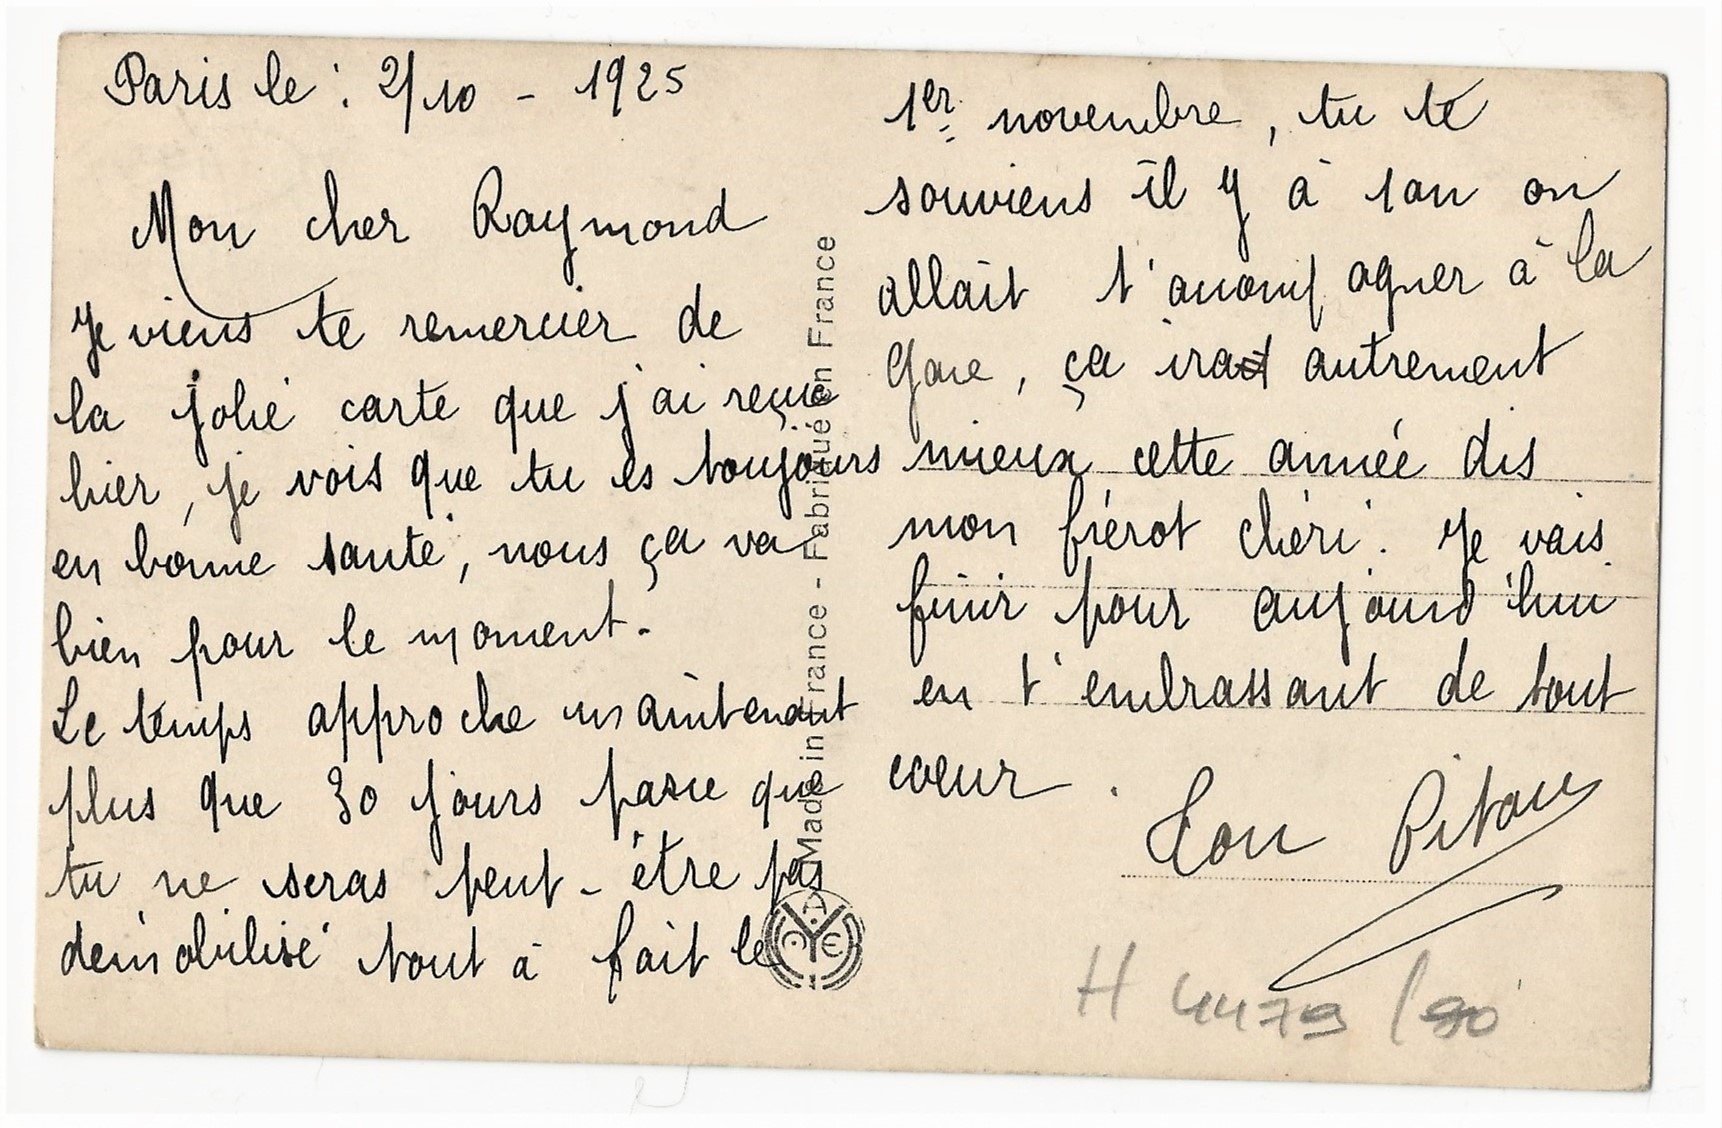 Paris le : 2/10 - 1925
Mon cher Raymond
Je viens te remercier de
la jolie carte que j'ai reçue
hier, je vois que tu es toujours
en bonne santé, nous ça va
bien pour le moment.
Le temps approche maintenant
plus que 30 jours parce que
tu ne seras peut-être pas
démobilisé tout à fait le
1er novembre, tu te
souviens il y à 1 an on
allait t'accompagner à la
Gare, ça ira autrement
mieux cette année dis
mon fiérot chéri. Je vais
finir pour aujourd'hui
en t'embrassant de tout
coeur.
Ton Pitou
Made in France - Fabriqué en France
H 4479 /90